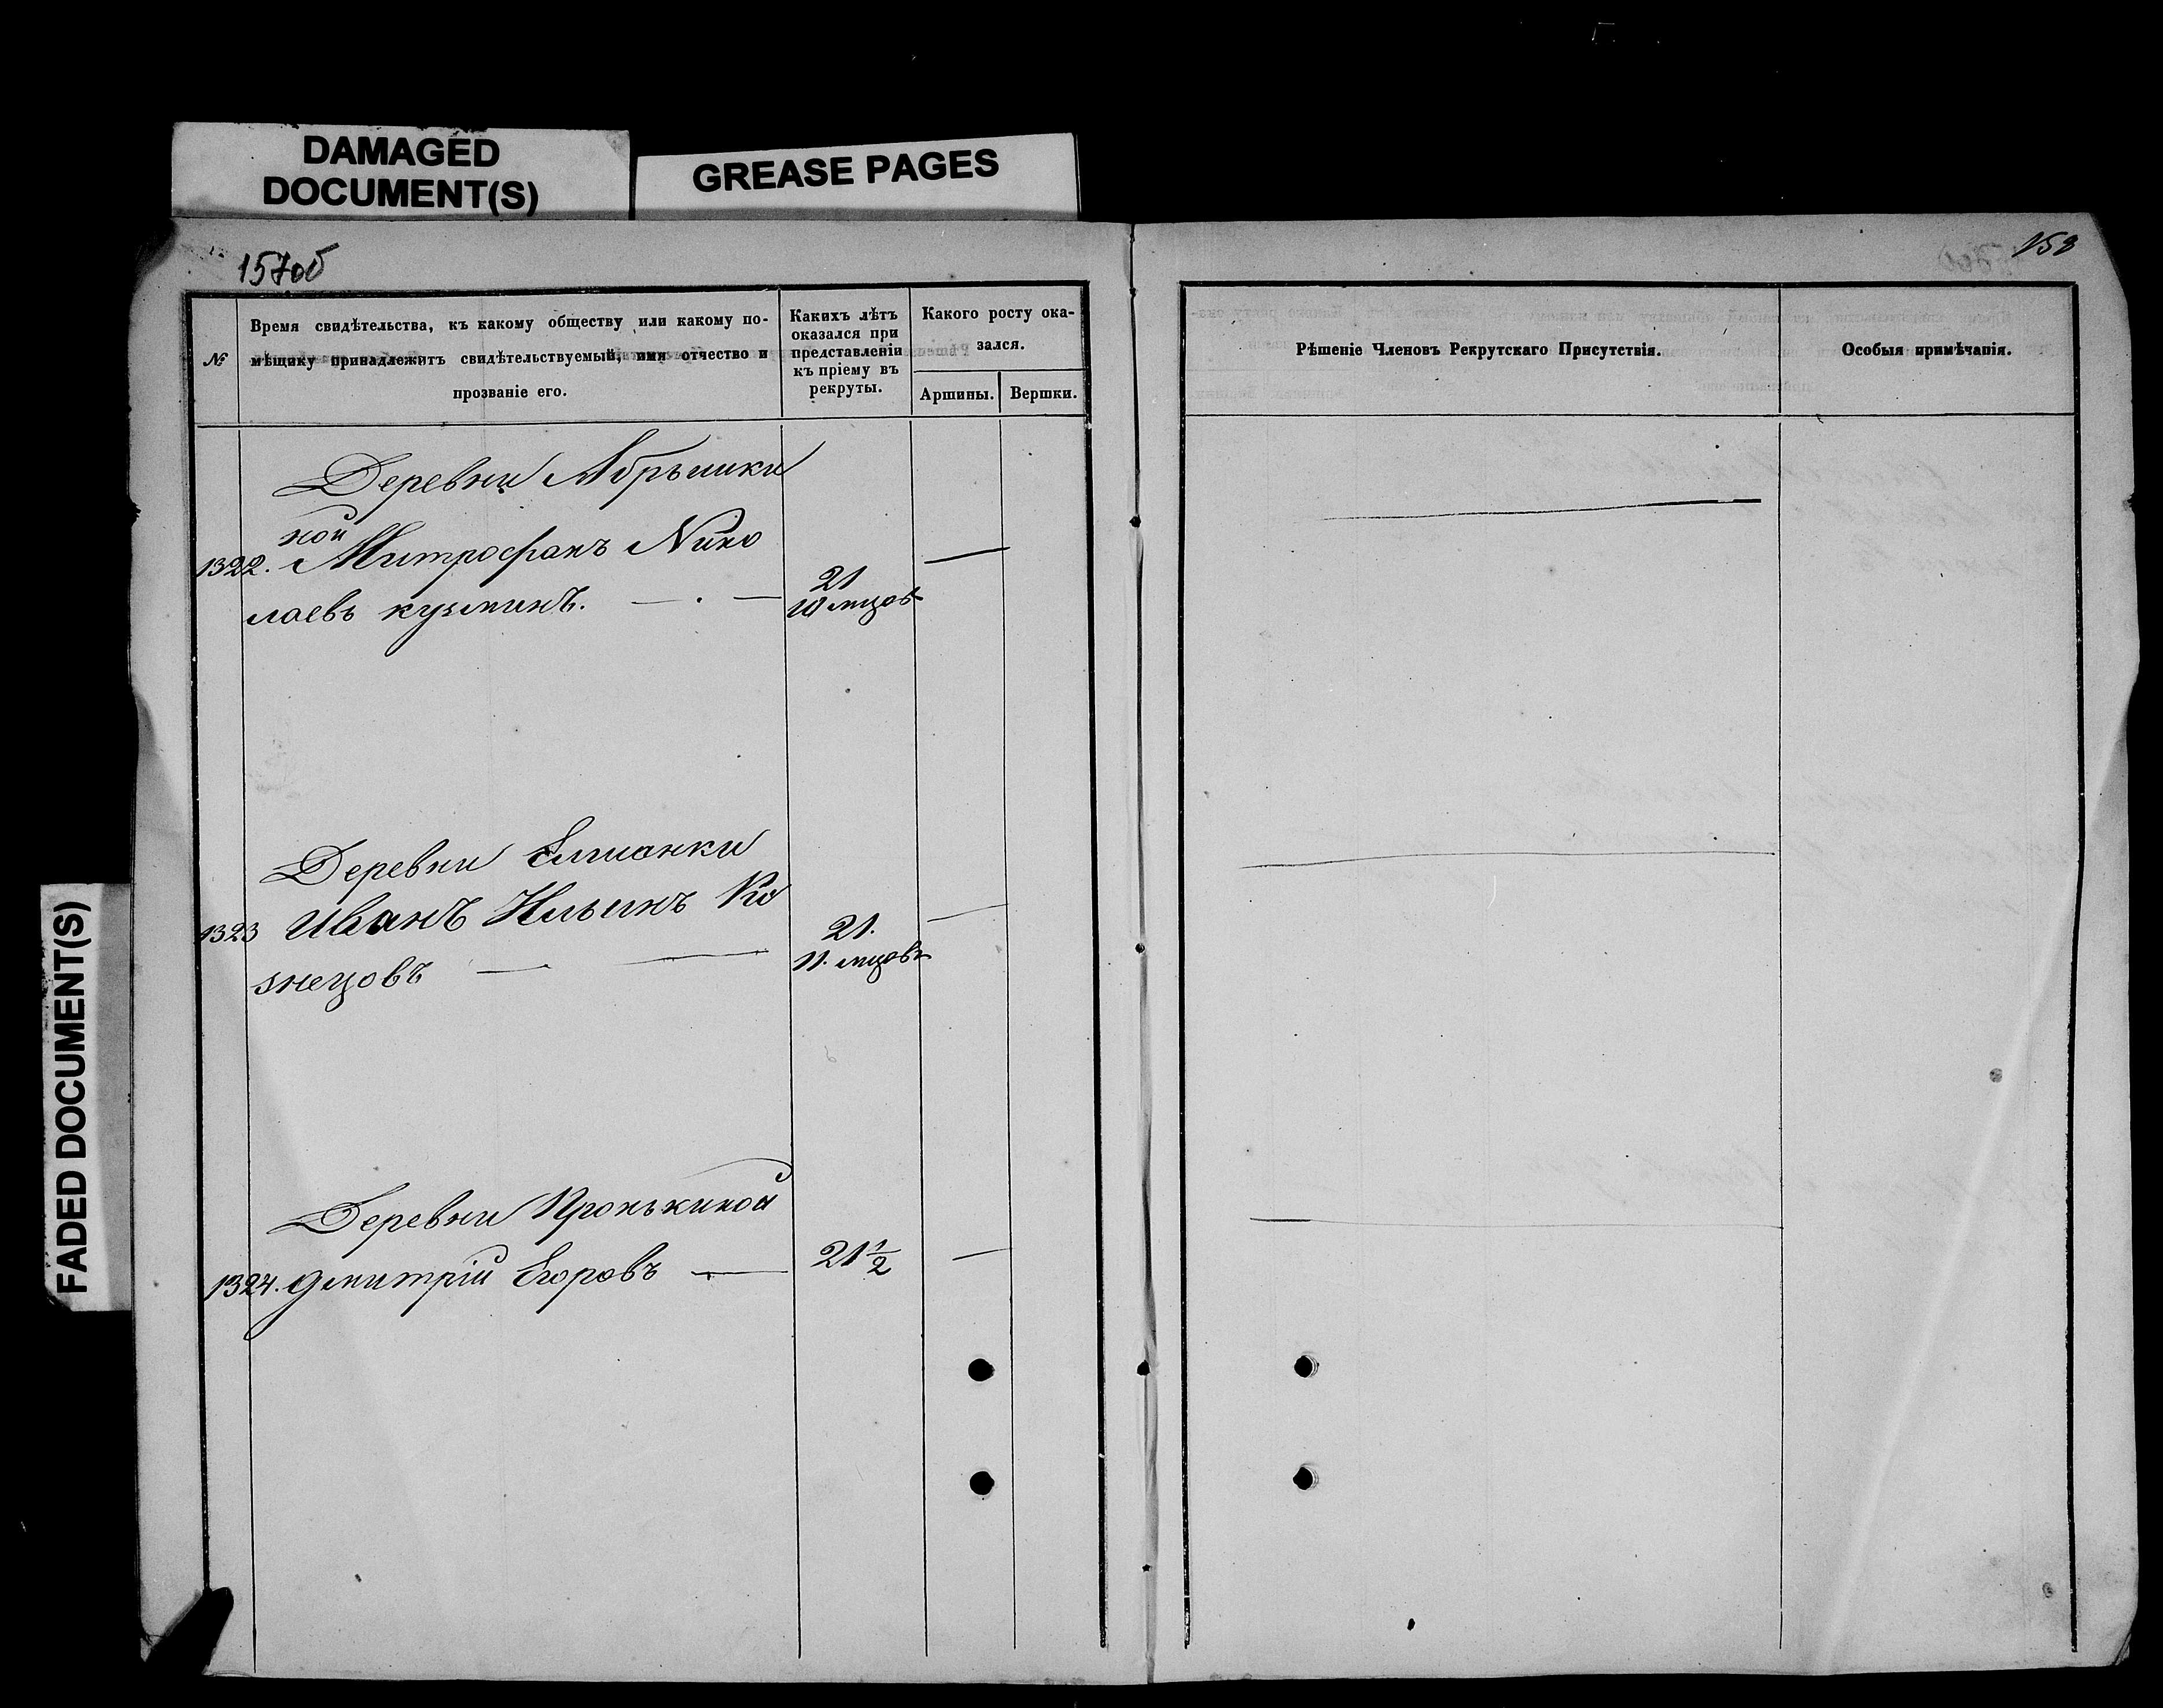 DAMAGED
DOCUMENT(S)
GREASE PAGES
FADED DOCUMENT(S)
157об
158
№
Время свидѣтельства, къ какому обществу или какому по-
мѣщику принадлежитъ свидѣтельствуемый, имя отчество и
прозваніе его.
Какихъ лѣтъ
оказался при
представленіи
къ пріему въ
рекруты.
Какого росту ока-
зался.
Аршины.
Вершки.
Рѣшеніе Членовъ Рекрутскаго Присутствія.
Особыя примѣчанія.
Деревни
ной
1322. Митрофанъ Нико
лаевъ кузминъ. 21
10 мцовъ
Деревни Елшанки
1323 Иванъ Ильинъ Ку
знецовъ 21.
11. мцовъ
Деревни Пронькиной
1324. Дмитрій Егоровъ 21 1/2